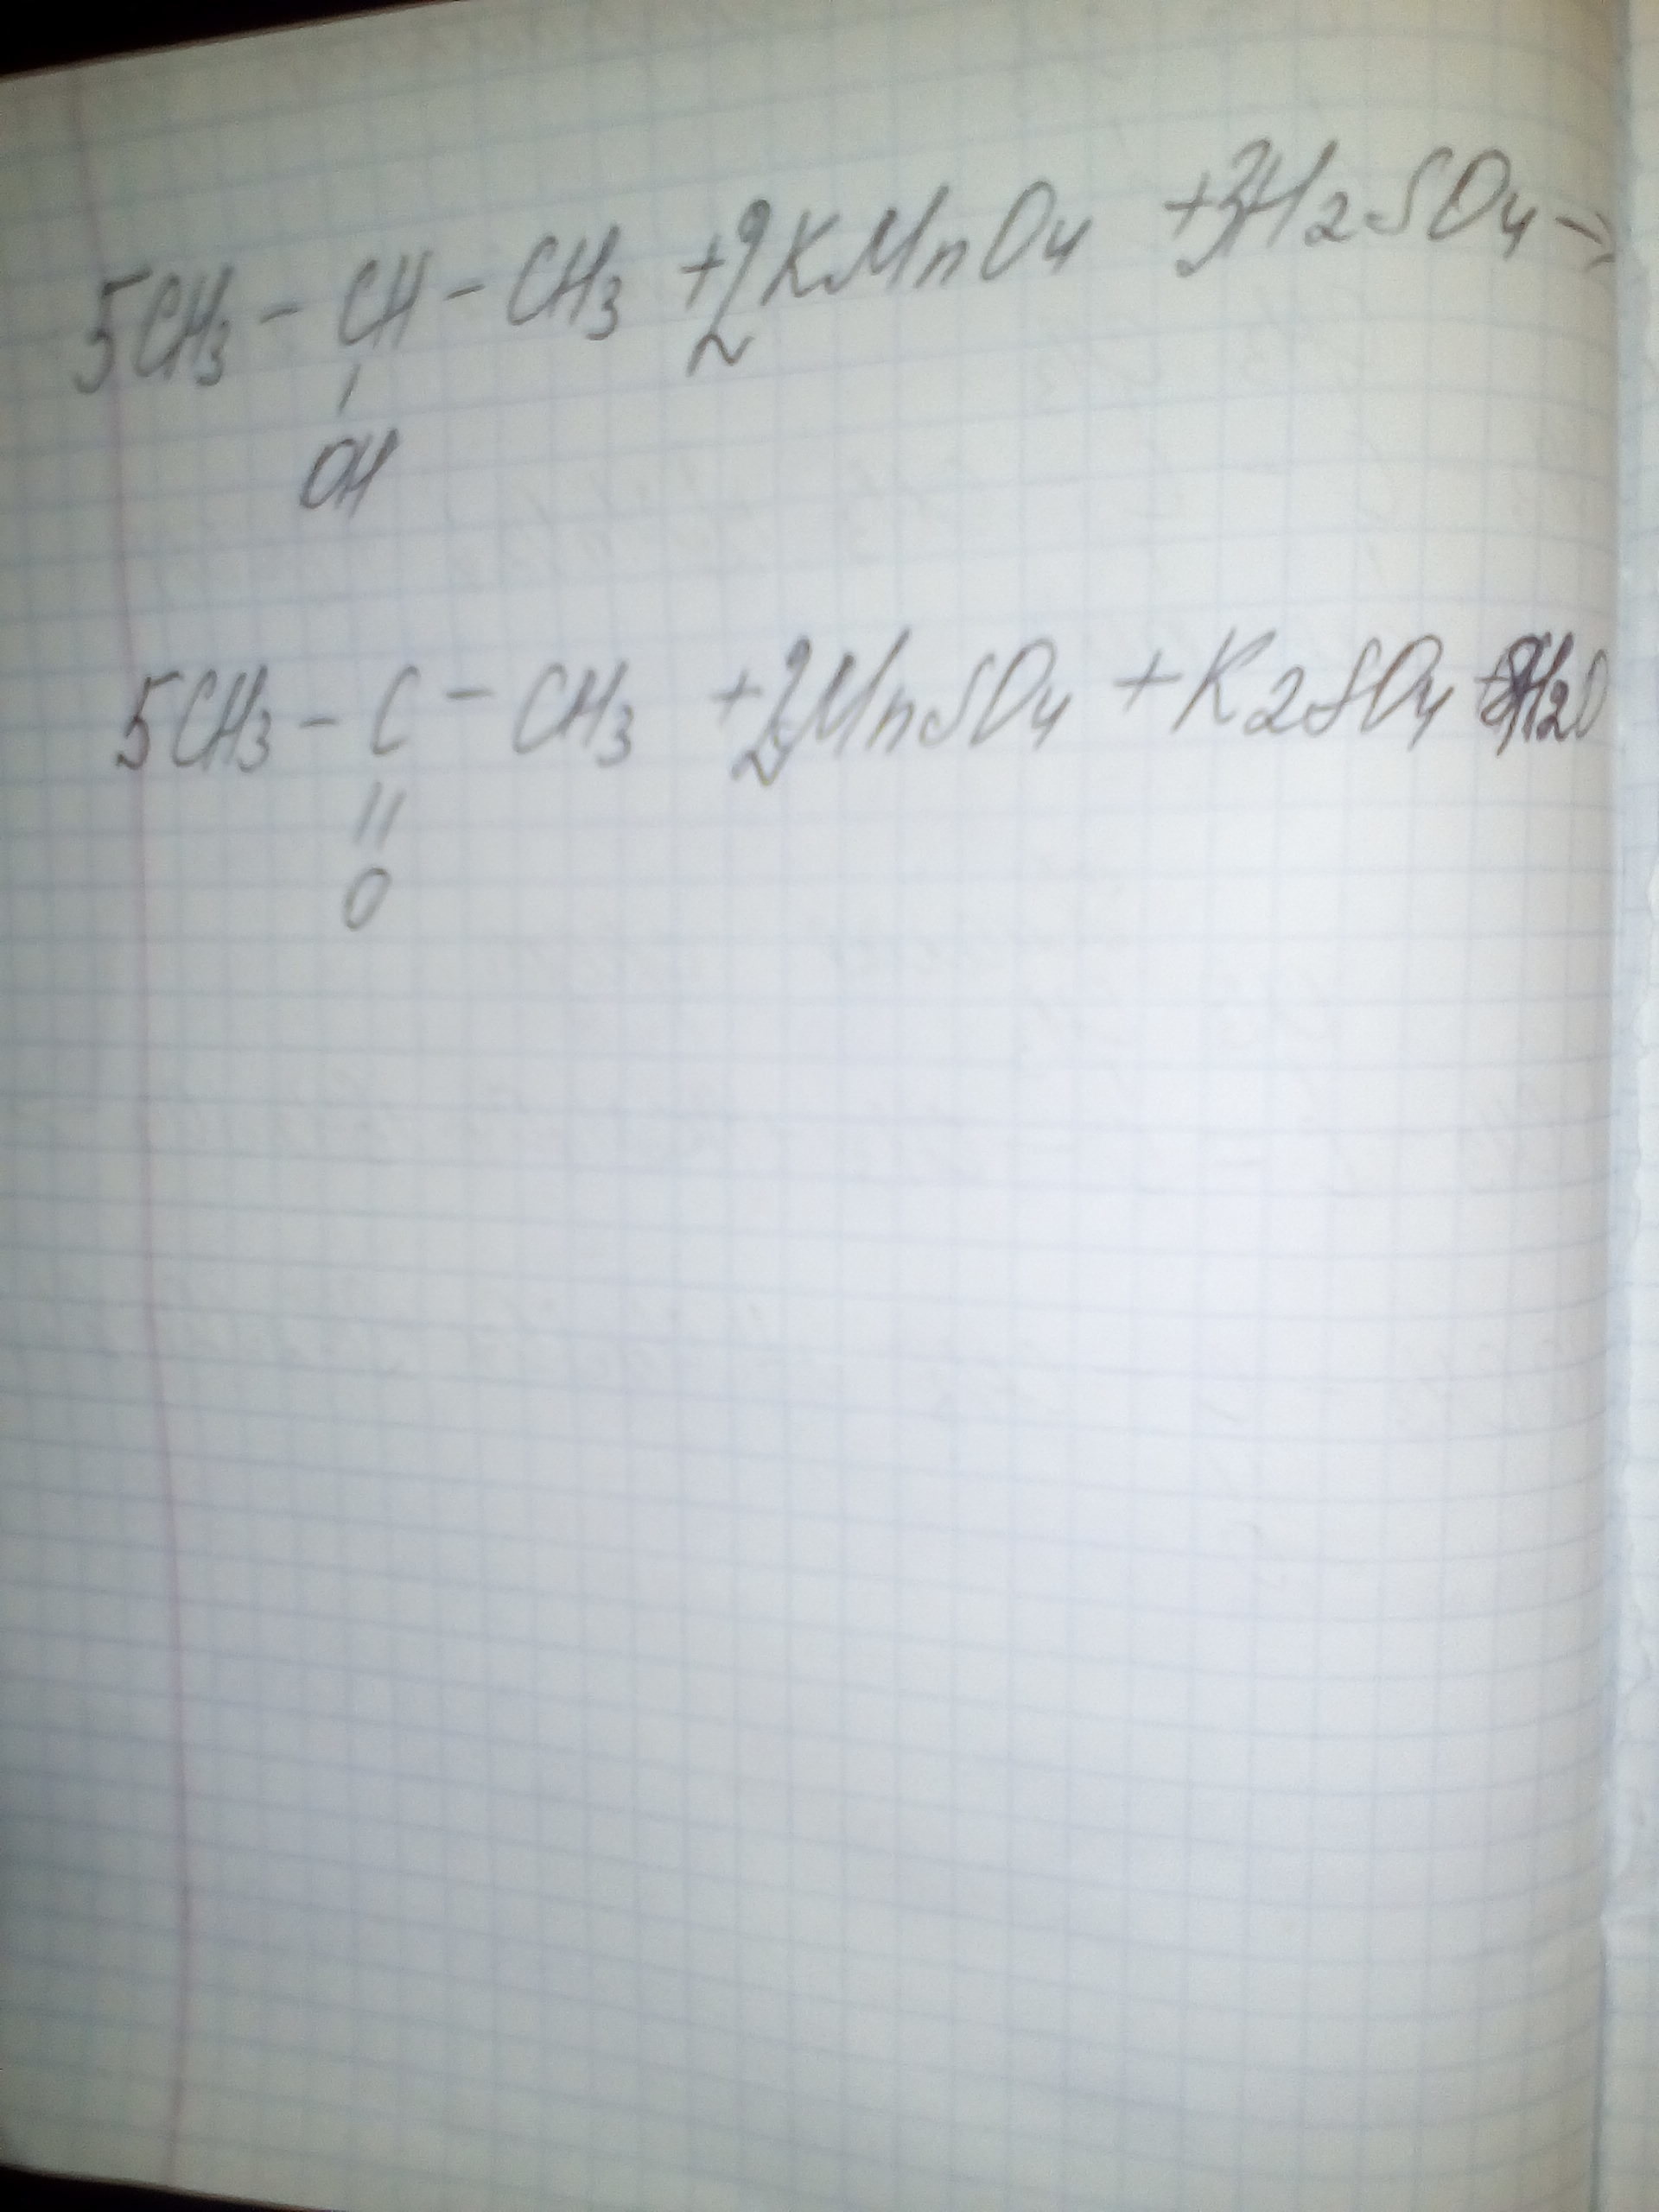 5CH3 - CH - CH3 + 2KMnO4 + 3H2SO4 →
|
OH
5CH3 - C - CH3 + 2MnSO4 + K2SO4 + 8H2O
||
O